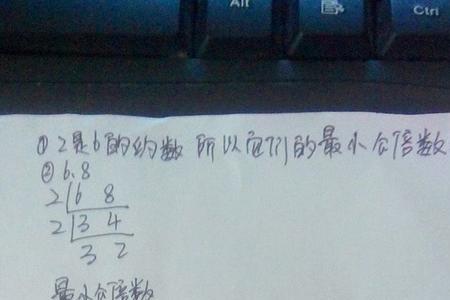 Alt
Ctrl
①2是6的约数 所以它们的最小公倍数
②6.8
2 6 8
2 3 4
3 2
最小公倍数